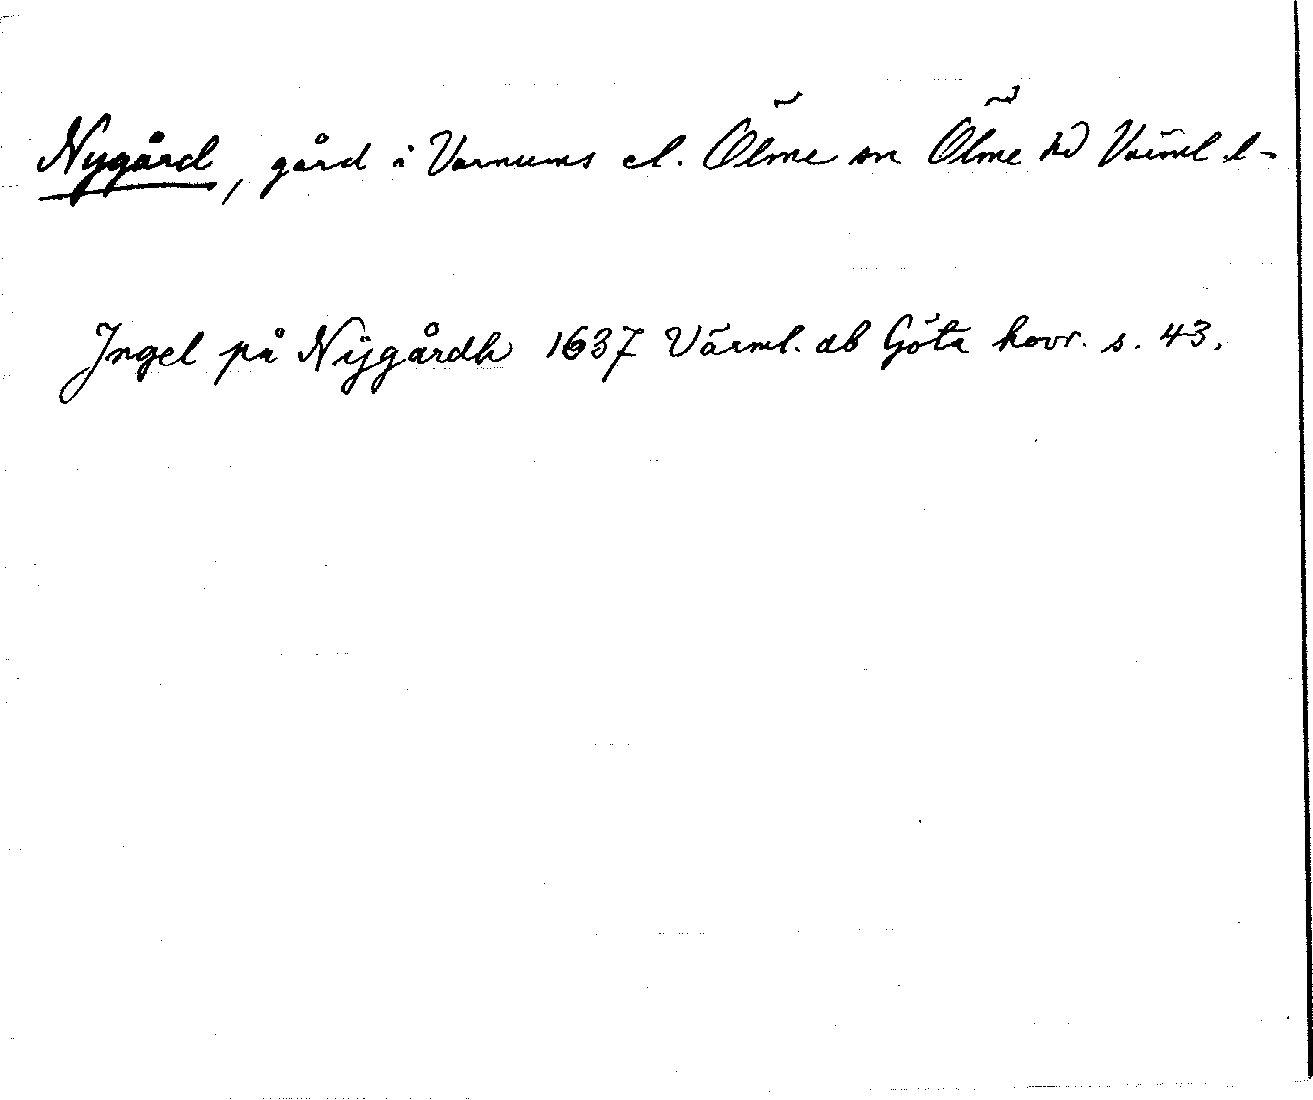 Nygård, gård i Varnums el. Ölme sn Ölme hd Värml. l-
Ingel på Nÿgårdh 1637 Värml. ab Göta hovr. s. 43.